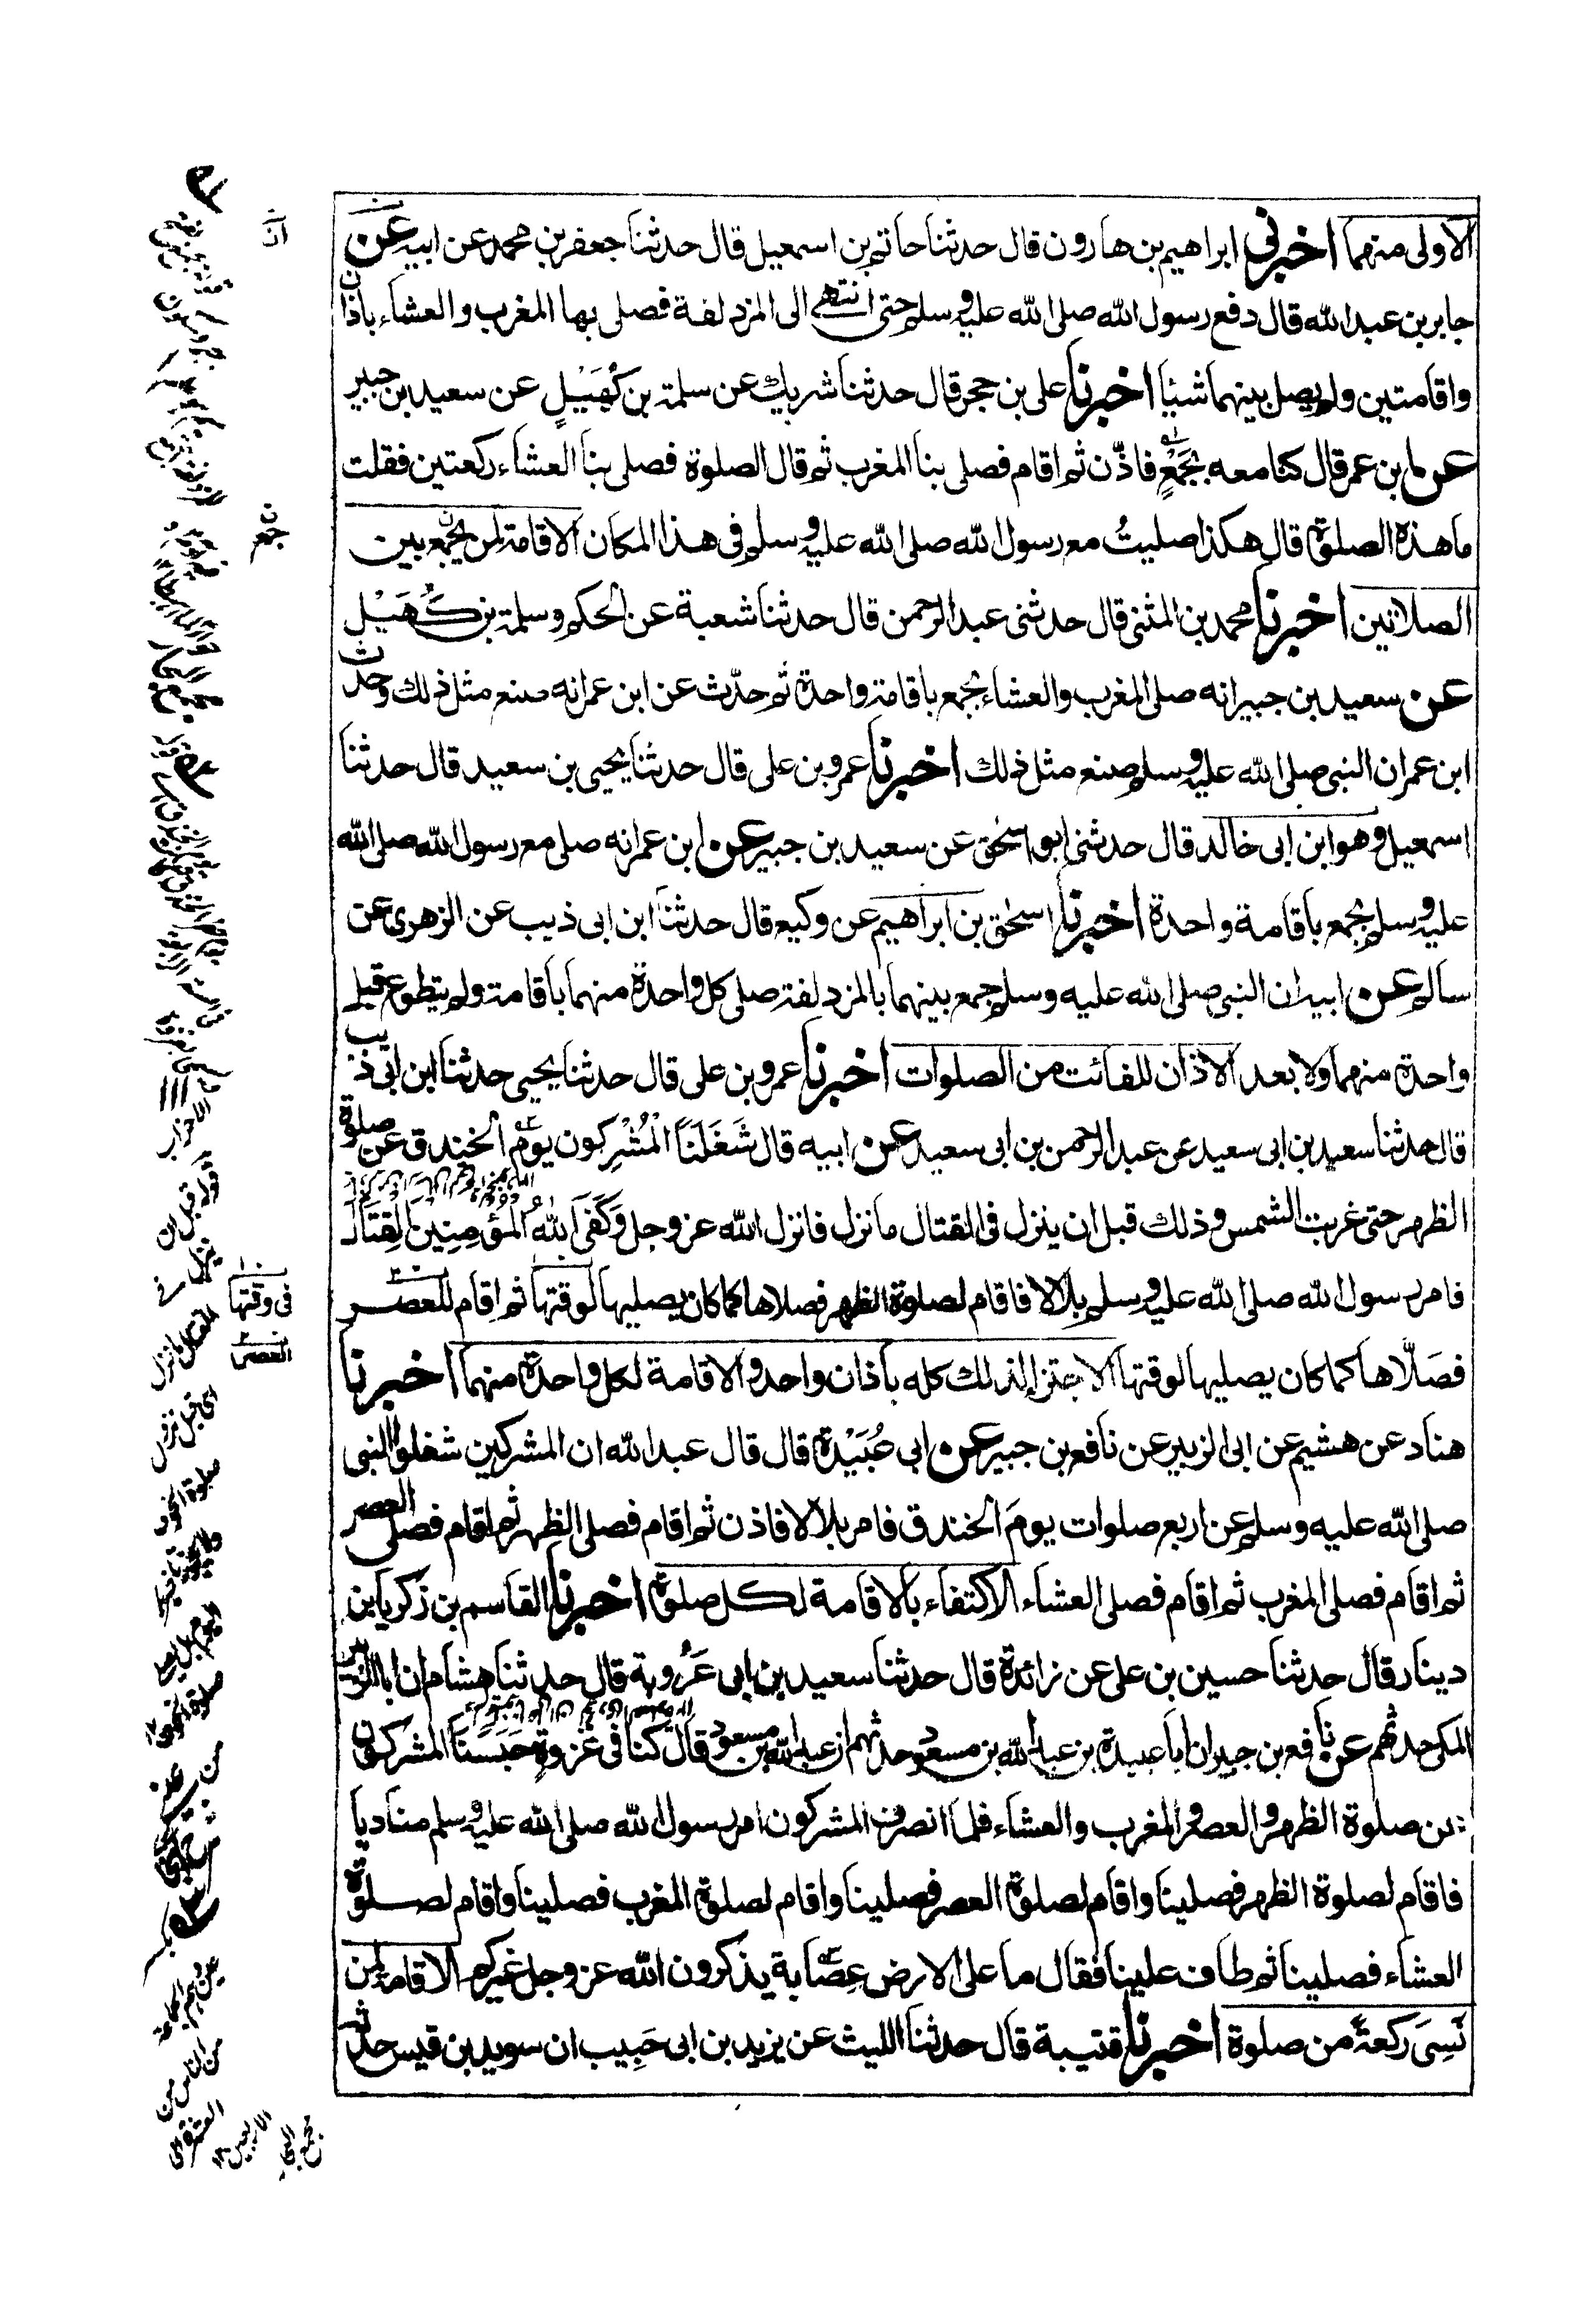 الاولى منهما اخبرني ابراهيم بن هارون قال حدثنا حاتم بن اسمعيل قال حدثنا جعفر بن محمد عن ابيه عن
جابر بن عبد الله قال دفع رسول الله صلى الله عليه وسلم حتى انتهى الى المزدلفة فصلى بها المغرب والعشاء باذان
واقامتين ولم يصل بينهما شيئا اخبرنا على بن حجر قال حدثنا شريك عن سلمة بن كُهَيْلٍ عن سعيد بن جبير
عن ابن عمر قال كنا معه بجَمْعٍ فاذّن ثم اقام فصلى بنا المغرب ثم قال الصلوة فصلى بنا العشاء ركعتين فقلت
ما هذه الصلوة قال هكذا صليتُ مع رسول الله صلى الله عليه وسلم فى هذا المكان الاقامة لمن يجمع بين
الصلاتين اخبرنا محمد بن المثنى قال حدثنى عبد الرحمن قال حدثنا شعبة عن الحكم وسلمة بن كُهَيْل
عن سعيد بن جبير انه صلى المغرب والعشاء بجمع باقامة واحدة ثم حدّث عن ابن عمر انه صنع مثل ذلك وحدث
ابن عمر ان النبى صلى الله عليه وسلم صنع مثل ذلك اخبرنا عمرو بن على قال حدثنا يحيى بن سعيد قال حدثنا
اسمعيل وهو ابن ابى خالد قال حدثنى ابو اسحق عن سعيد بن جبير عن ابن عمر انه صلى مع رسول الله صلى الله
عليه وسلم بجمع باقامة واحدة اخبرنا اسحق بن ابراهيم عن وكيع قال حدثنا ابن ابى ذيب عن الزهرى عن
سالم عن ابيه ان النبى صلى الله عليه وسلم جمع بينهما بالمزدلفة صلى كل واحدة منهما باقامة ولم يتطوع قبل
واحدة منهما ولا بعد الاذان للفائت من الصلوات اخبرنا عمرو بن على قال حدثنا يحيى حدثنا ابن ابى ذيب
قال حدثنا سعيد بن ابى سعيد عن عبد الرحمن بن ابى سعيد عن ابيه قال شَغَلَنَا الْمُشْرِكون يوم الخندق عن صلوة
الظهر حتى غربت الشمس وذلك قبل ان ينزل فى القتال ما نزل فانزل الله عز وجل وَكَفَى اللهُ الْمُؤمِنِينَ الْقِتَالَ
فامر رسول الله صلى الله عليه وسلم بلالا فاقام لصلوة الظهر فصلاها كما كان يصليها لوقتها ثم اقام للعصر
فصَلّاها كما كان يصليها لوقتها الاجتزاء لذلك كله باذان واحد والاقامة لكل واحدة منهما اخبرنا
هناد عن هشيم عن ابى الزبير عن نافع بن جبير عن ابي عُبَيْدة قال قال عبد الله ان المشركين شغلوا النبى
صلى الله عليه وسلم عن اربع صلوات يومَ الخندق فامر بلالا فاذن ثم اقام فصلى الظهر ثم اقام فصلى العصر
ثم اقام فصلى المغرب ثم اقام فصلى العشاء الاكتفاء بالاقامة لكل صلوة اخبرنا القاسم بن زكريا بن
دينار قال حدثنا حسين بن على عن زائدة قال حدثنا سعيد بن ابى عَرُوبة قال حدثنا هشام ان ابا الزبير
المكى حدثهم عن نافع بن جبير ان ابا عبيدة بن عبد الله بن مسعود حدثهم ان عبد الله بن مسعود قال كنا فى غزوةٍ حَبَسَنَا المشركون
عن صلوة الظهر والعصر والمغرب والعشاء فلما انصرف المشركون امر رسول الله صلى الله عليه وسلم مناديا
فاقام لصلوة الظهر فصلينا واقام لصلوة العصر فصلينا واقام لصلوة المغرب فصلينا واقام لصلوة
العشاء فصلينا ثم طاف علينا فقال ما على الارض عِصَابة يذكرون الله عز وجل غيركم الاقامة لمن
نَسِىَ ركعةً من صلوة اخبرنا قتيبة قال حدثنا الليث عن يزيد بن ابى حَبِيب ان سويد بن قيس حدثه
انَّ
جمع
فى وقتها
العصر
الاحزاب
قوله قبل ان
ينزل فى
القتال ما نزل